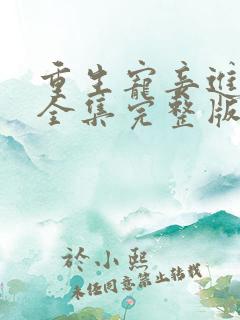 重生寵妾進
全集完整版
於小熙
未經同意禁止轉載